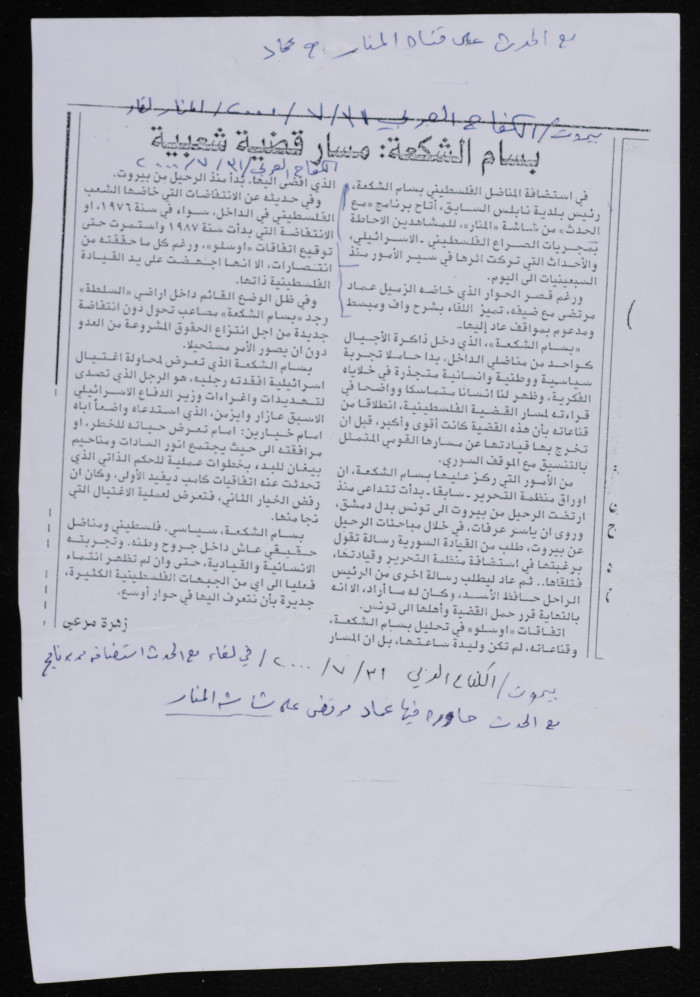 مع الحدث على قناة المنار مع عماد
بيروت/ الكفاح العربي ٣١/٧/٢٠٠٠/ المنار لقاء
بسام الشكعة: مسار قضية شعبية
الكفاح العربي/٣١/٧/٢٠٠٠
في استضافة المناضل الفلسطيني بسام الشكعة،
رئيس بلدية نابلس السابق، أتاح برنامج «مع
الحدث» من شاشة «المنار»، للمشاهدين الاحاطة
بمجريات الصراع الفلسطيني ـ الاسرائيلي،
والأحداث التي تركت اثرها في سير الأمور منذ
السبعينيات الى اليوم.
ورغم قصر الحوار الذي خاضه الزميل عماد
مرتضى مع ضيفه، تميز اللقاء، بشرح واف ومبسط
ومدعوم بمواقف عاد إليها.
«بسام الشكعة»، الذي دخل ذاكرة الأجيال
كواحد من مناضلي الداخل، بدا حاملا تجربة
سياسية ووطنية وانسانية متجذرة في خلاياه
الفكرية، وظهر لنا انسانا متماسكا وواضحا في
قراءته لمسار القضية الفلسطينية، انطلاقا من
قناعاته بأن هذه القضية كانت أقوى وأكبر، قبل ان
تخرج بها قيادتها عن مسارها القومي المتمثل
بالتنسيق مع الموقف السوري.
من الأمور التي ركز عليها بسام الشكعة، ان
اوراق منظمة التحرير ـ سابقا ـ بدأت تتداعى منذ
ارتضت الرحيل من بيروت الى تونس بدل دمشق،
وروى ان ياسر عرفات، في خلال مباحثات الرحيل
عن بيروت، طلب من القيادة السورية رسالة تقول
برغبتها في استضافة منظمة التحرير وقيادتها،
فتلقاها.. ثم عاد ليطلب رسالة اخرى من الرئيس
الراحل حافظ الأسد، وكان له ما أراد، الا انه
بالنهاية قرر حمل القضية وأهلها الى تونس.
اتفاقات «اوسلو» في تحليل بسام الشكعة،
وقناعاته، لم تكن وليدة ساعتها، بل ان المسار
الذي افضى اليها، بدأ منذ الرحيل من بيروت.
وفي حديثه عن الانتفاضات التي خاضها الشعب
الفلسطيني في الداخل، سواء في سنة ١٩٧٦، او
الانتفاضة التي بدأت سنة ١٩٨٧ واستمرت حتى
توقيع اتفاقات «اوسلو»، ورغم كل ما حققته من
انتصارات، الا انها اجهضت على يد القيادة
الفلسطينية ذاتها.
وفي ظل الوضع القائم داخل اراضي «السلطة»
رجد «بسام الشكعة» مصاعب تحول دون انتفاضة
جديدة من اجل انتزاع الحقوق المشروعة من العدو
دون ان يصور الأمر مستحيلا.
بسام الشكعة الذي تعرض لمحاولة اغتيال
اسرائيلية افقدته رجليه، هو الرجل الذي تصدى
لتهديدات واغراءات وزير الدفاع الاسرائيلي
الاسبق عازار وايزمن، الذي استدعاه واضعاً اياه
امام خيارين: امام تعرض حياته للخطر، او
مرافقته الى حيث يجتمع انور السادات ومناحيم
بيغان للبدء بخطوات عملية للحكم الذاتي الذي
تحدثت عنه اتفاقيات كامب ديفيد الأولى، وكان ان
رفض الخيار الثاني، فتعرض لعملية الاغتيال التي
نجا منها.
بسام الشكعة، سياسي، فلسطيني ومناضل
حقيقي عاش داخل جروح وطنه، وتجربته
الانسانية والقيادية، حتى وان لم تظهر انتماء
فعليا الى اي من الجبهات الفلسطينية الكثيرة،
جديرة بأن نتعرف اليها في حوار أوسع.
زهرة مرعي
بيروت/ الكفاح العربي ٣١/٧/٢٠٠٠/ في لقاء مع الحدث استضافه برنامج
مع الحدث حاوره فيها عماد مرتضى على شاشة المنار